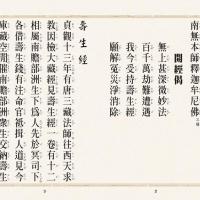 南無本師釋迦牟尼佛
開經偈
無上甚深微妙法
百千萬劫難遭遇
我今受持壽生經
願解冤災淨消除
壽生經
貞觀十三年有唐三藏法師往西天求
教因檢大藏經見壽生經一卷有十二
相屬南瞻部洲生下為人先於冥司下
各借壽生錢有注命官祗揖人道見今
庫藏空閒催南瞻部洲眾生交納壽生